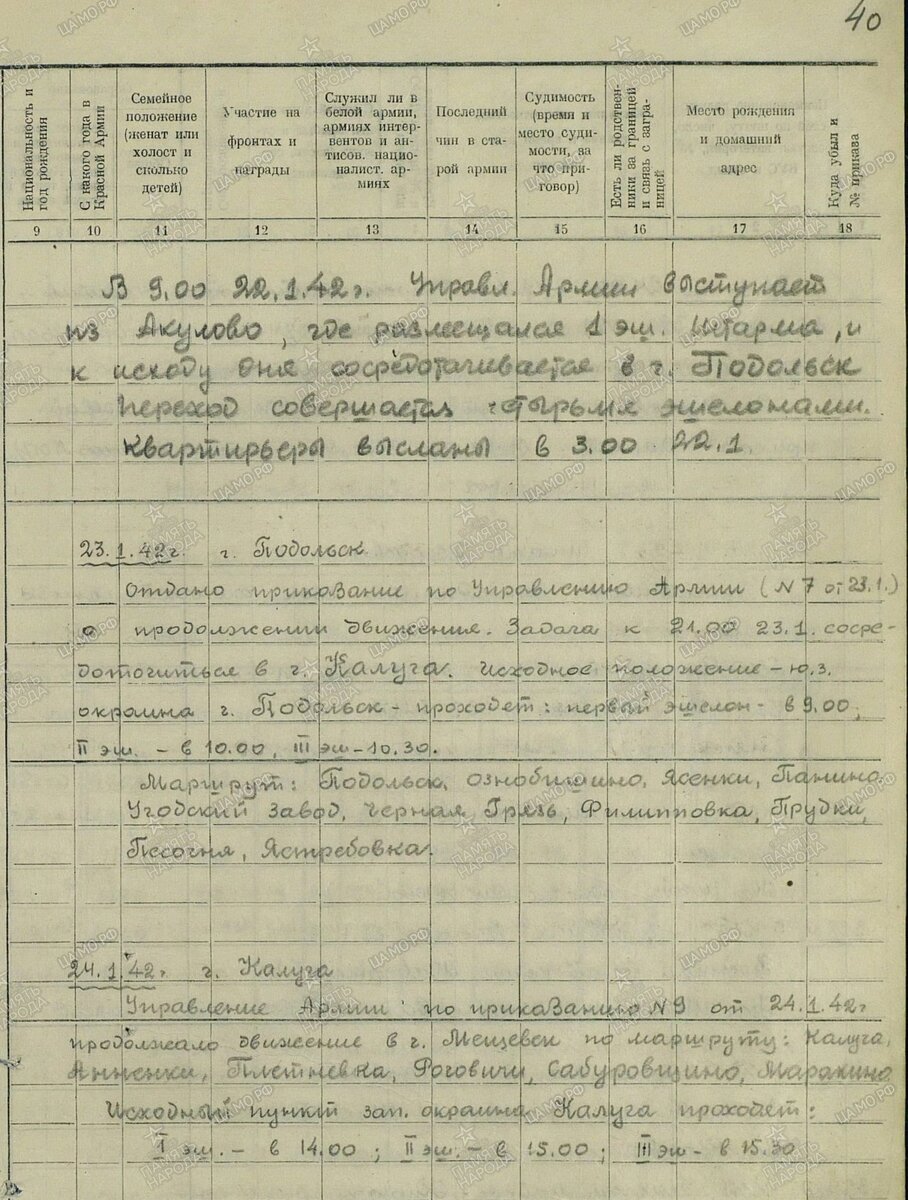 40
Национальность и год рождения
С какого года в Красной Армии
Семейное положение (женат или холост и сколько детей)
Участие на фронтах и награды
Служил ли в белой армии, армиях интервентов и антисов. националист. армиях
Последний чин в старой армии
Судимость (время и место судимости, за что приговор)
Есть ли родственники за границей и связь с заграницей
Место рождения и домашний адрес
Куда убыл и № приказа
9 10 11 12 13 14 15 16 17 18
В 9.00 22.1.42г. Управл. Армии выступает
из Акулово, где размещалая 1 эш. штарма, и
к исходу дня сосредотачивается в г. Подольск
Переход совершается четырьмя эшелонами.
Квартирьеры высланы в 3.00 22.1
23.1.42г. г. Подольск
Отдано приказание по Управлению Армии (N 7 от 23.1.)
о продолжении движения. Задача к 21.00 23.1. сосре-
доточиться в г. Калуга. Исходное положение – ю.з.
окраина г. Подольск – проходет: первый эшелон – в 9.00,
II эш. – в 10.00, III эш – 10.30.
Маршрут: Подольск, Ознобишино, Ясенки, Панино,
Угодский Завод, Черная Грязь, Филипповка, Прудки,
Песочня, Ястребовка.
24.1.42г. г. Калуга
Управление Армии по приказанию N 9 от 24.1.42г
продолжало движение в г. Мещевск по маршруту: Калуга,
Анненки, Плетневка, Роговичи, Сабуровщино, Маракино
Исходный пункт зап. окраина Калуга проходет:
I эш. – в 14.00; II эш. – в 15.00; III эш – в 15.30